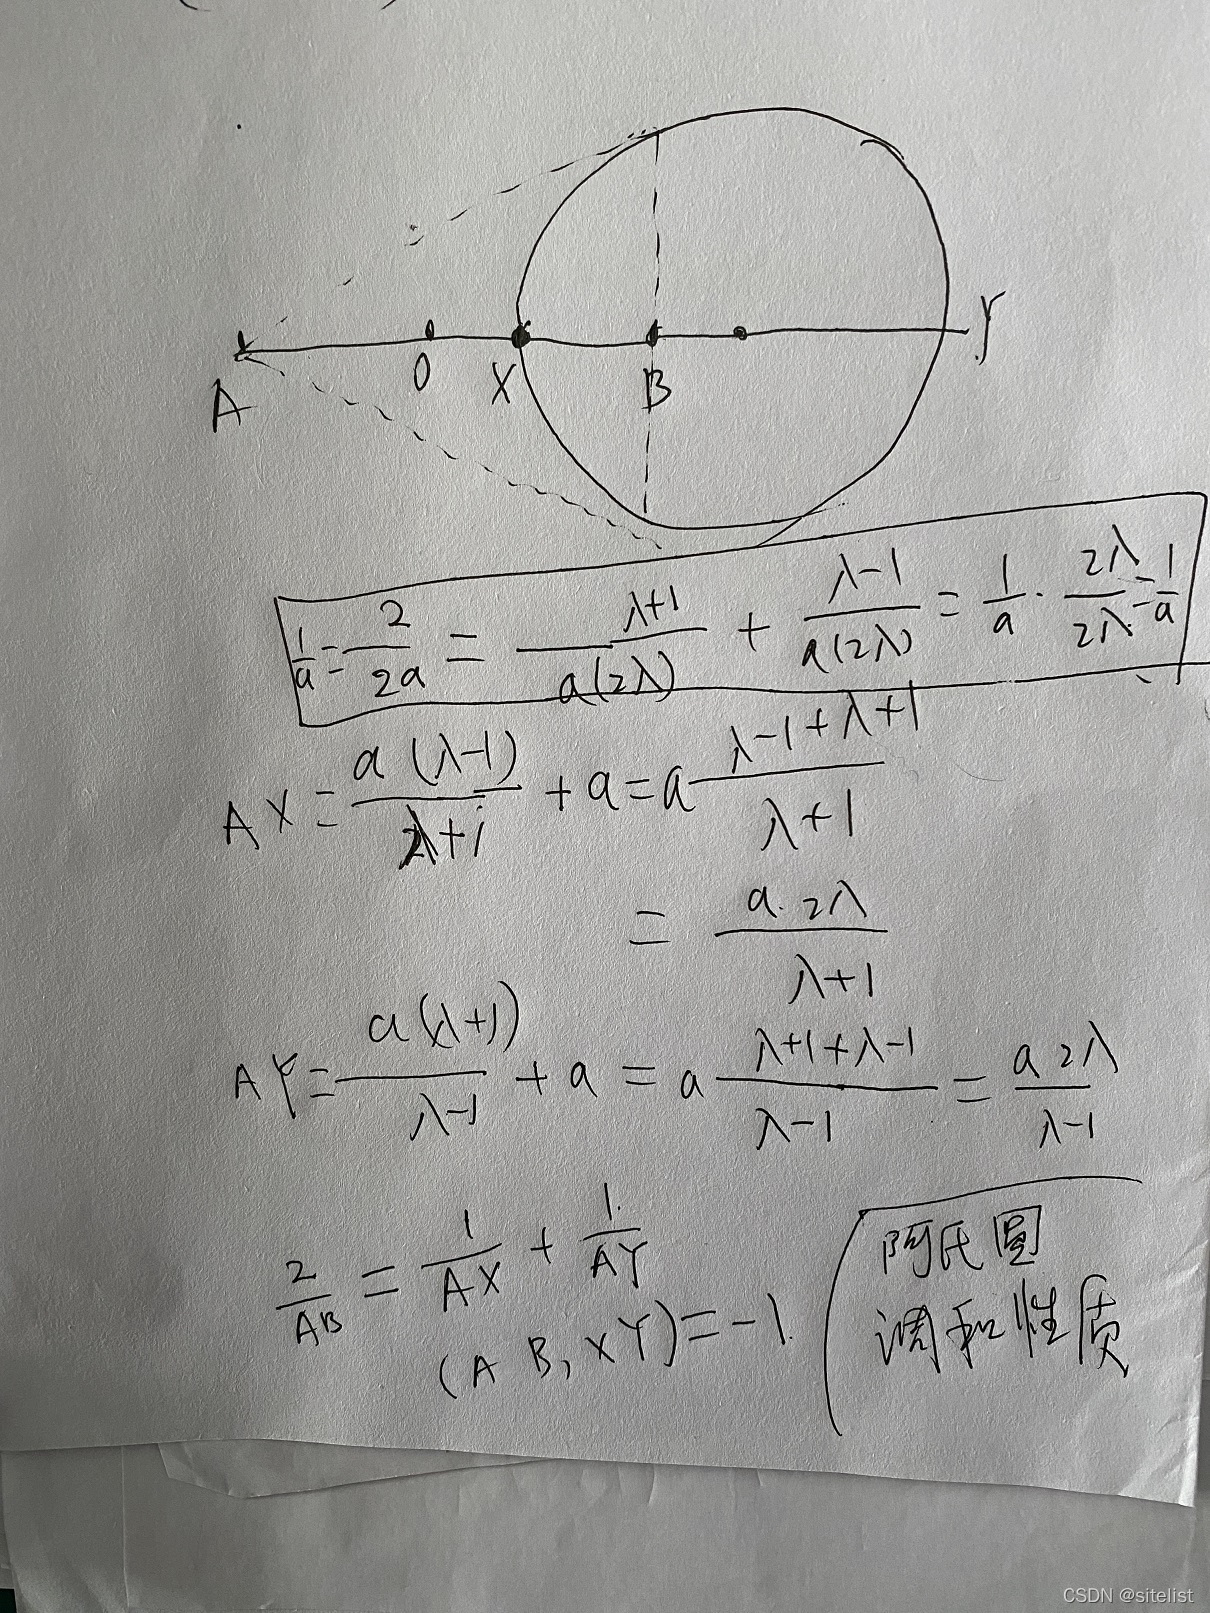 A O X B Y
1/a = 2/2a = λ+1/a(2λ) + λ-1/a(2λ) = 1/a · 2λ/2λ = 1/a
AX = a(λ-1)/λ+1 + a = a λ-1+λ+1/λ+1
= a·2λ/λ+1
AY = a(λ+1)/λ-1 + a = a λ+1+λ-1/λ-1 = a2λ/λ-1
2/AB = 1/AX + 1/AY
(AB,XY)=-1.
阿氏圆
调和性质
CSDN @sitelist